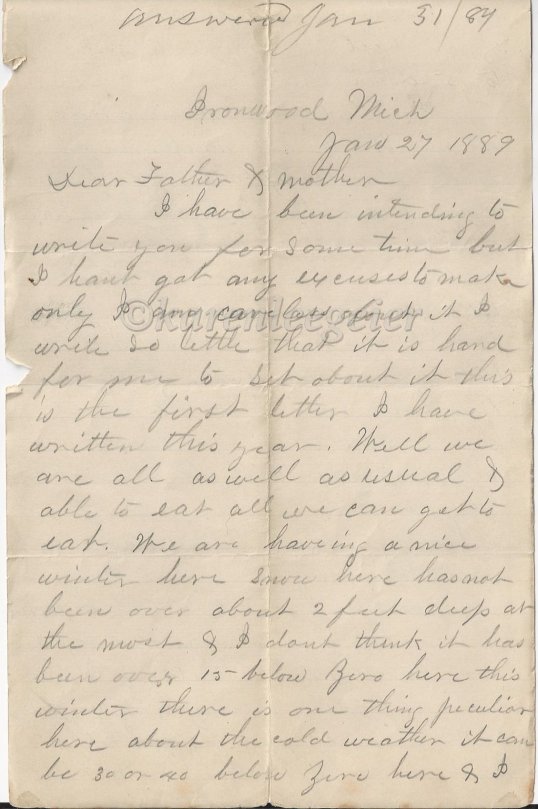 answered Jan 31/89
Ironwood Mich
Jan 27 1889
Dear Father & mother
I have been intending to
write you for some tim but
I hant got any excuses to make
only I am careless about it I
write so little that it is hand
for me to set about it this
is the first letter I have
written this year. Well we
are all as well as usual &
able to eat all we can get to
eat. We are haveing a nice
winter here snow here has not
been over about 2 feet deep at
the most & I dont think it has
been over 15 below Zero here this
winter there is one thing peculiar
here about the cold weather it can
be 30 or 40 below Zero here & I
©karenleegeier